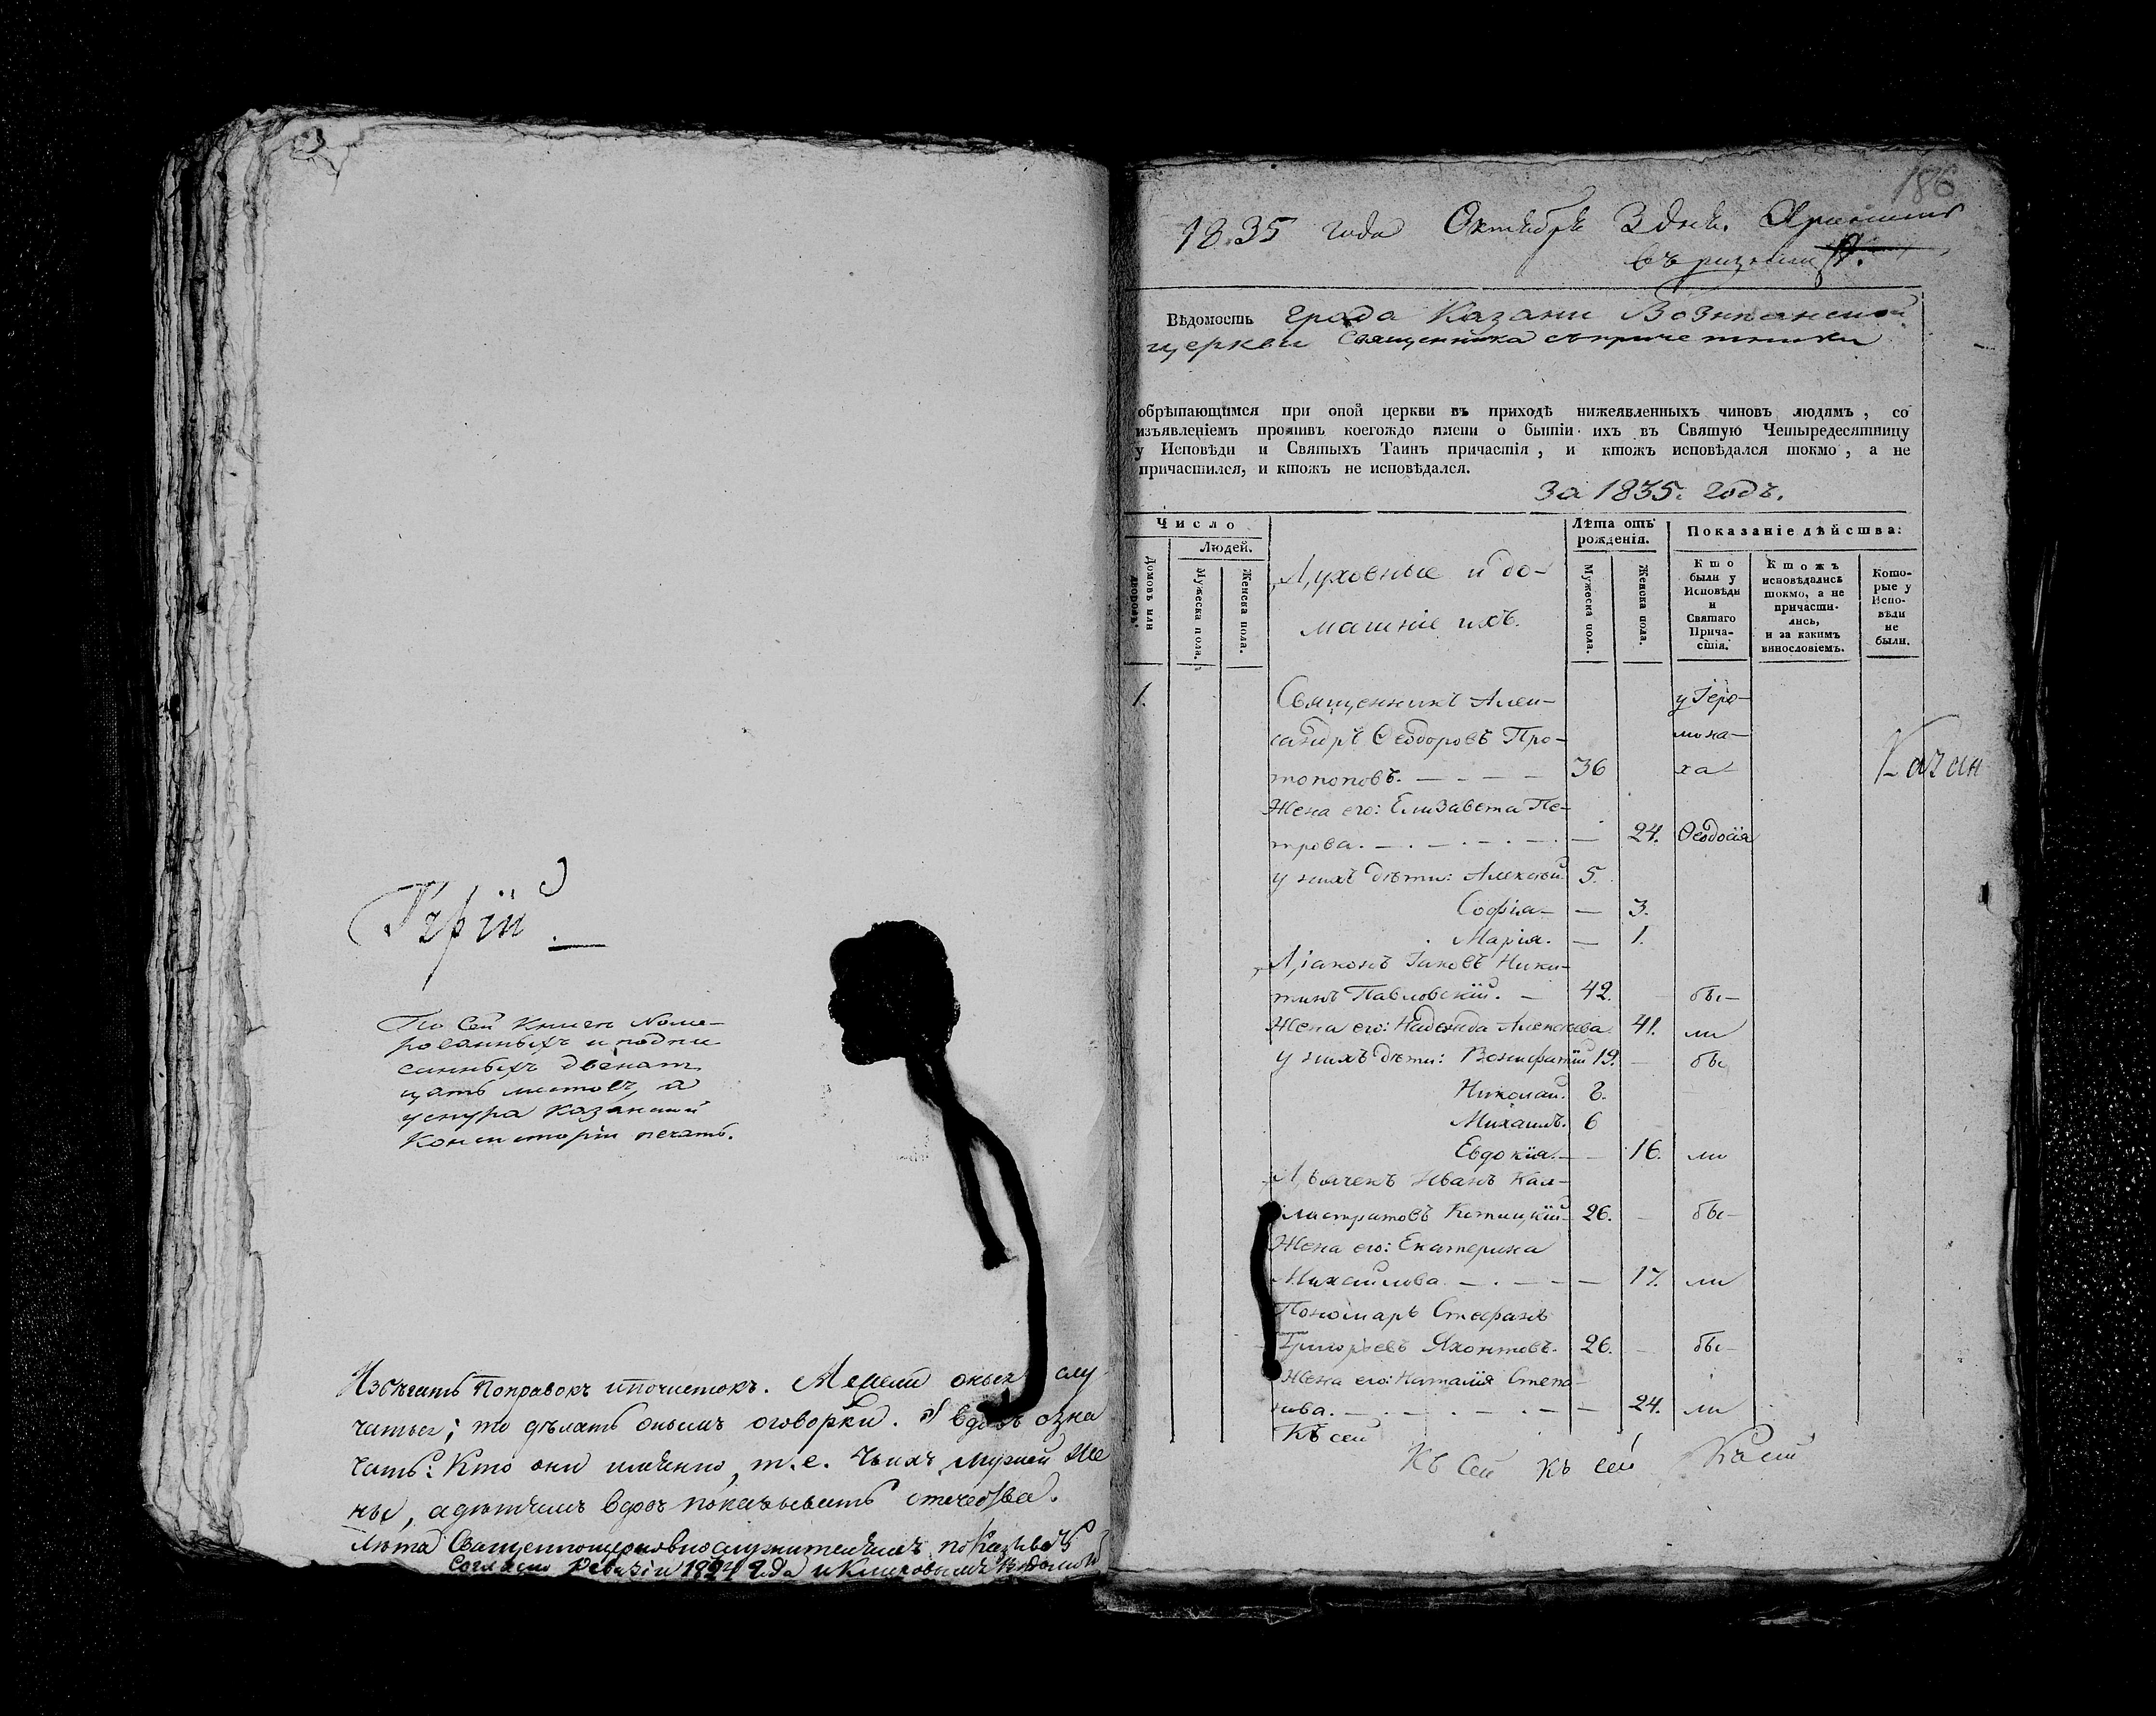 По сей книгѣ номе-
рованныхъ и подпи
санныхъ двѣнат
цать листовъ, а
уснура Казанской
Консисторіи печать.
Избѣгать поправокъ и почистокъ. оныя слу
чатьса; то дѣлать онымъ оговорки. вдовъ озна
чать: кто они именно, т.е. чьихъ мужей же
ны, а дѣтямъ вдовъ показывать отечества.
Лѣта Священноцерковнослужителямъ показывать
согласно Ревизіи 1834 года и Клировымъ
186
1835 года Октября 3 дня.
Вѣдомость града Казани Вознесенской
церкви Священника съ причетники
обрѣтающимся при оной церкви въ приходѣ нижеявленныхъ чиновъ людямъ, со
изъявленіемъ противъ коегождо имени о бытіи ихъ въ Святую Четыредесятницу
у Исповѣди и Святыхъ Таинъ причастія, и ктожъ исповѣдался токмо, а не
причастился, и ктожъ не исповѣдался.
за 1835. годъ.
Число
Людей.
Домовъ или дворовъ.
Мужеска пола.
Женска пола.
Духовные и до-
машніе ихъ.
Лѣта отъ
рожденія.
Мужеска пола.
Женска пола.
Показаніе дѣйства:
Кто
были у
Исповѣди
и
Святаго
Прича-
стія.
Ктожъ
исповѣдались
токмо, а не
причасти-
лись,
и за какимъ
винословіемъ.
Кото-
рые у
Испо-
вѣди
не
были.
1. Священникъ Алек- у Іеро-
сандръ Ѳеодоровъ Про- мона-
топоповъ. — 36 ха
Жена его: Елизавета Пе-
трова. — 24. Ѳеодосія
у нихъ дѣти: Алексѣй 5.
Софія — 3.
Марія. — 1.
Діаконъ Іаковъ Ники-
тинъ Павловскій. — 42. бы-
Жена его: Надежда Алексѣева 41. ли
у нихъ дѣти: Вонифатій 19. бы
Николай. 8.
Михаилъ. 6
Евдокія. — 16. ли
Дьячекъ Иванъ Кал-
листратовъ 26. бы-
Жена его: Екатерина
Михайлова. — 17. ли
Пономарь Стефанъ
Григорьевъ Яхонтовъ. 26. бы-
Жена его: Наталія Степа-
нова. — 24. ли
Къ сей
Къ сей Къ сей Къ сей